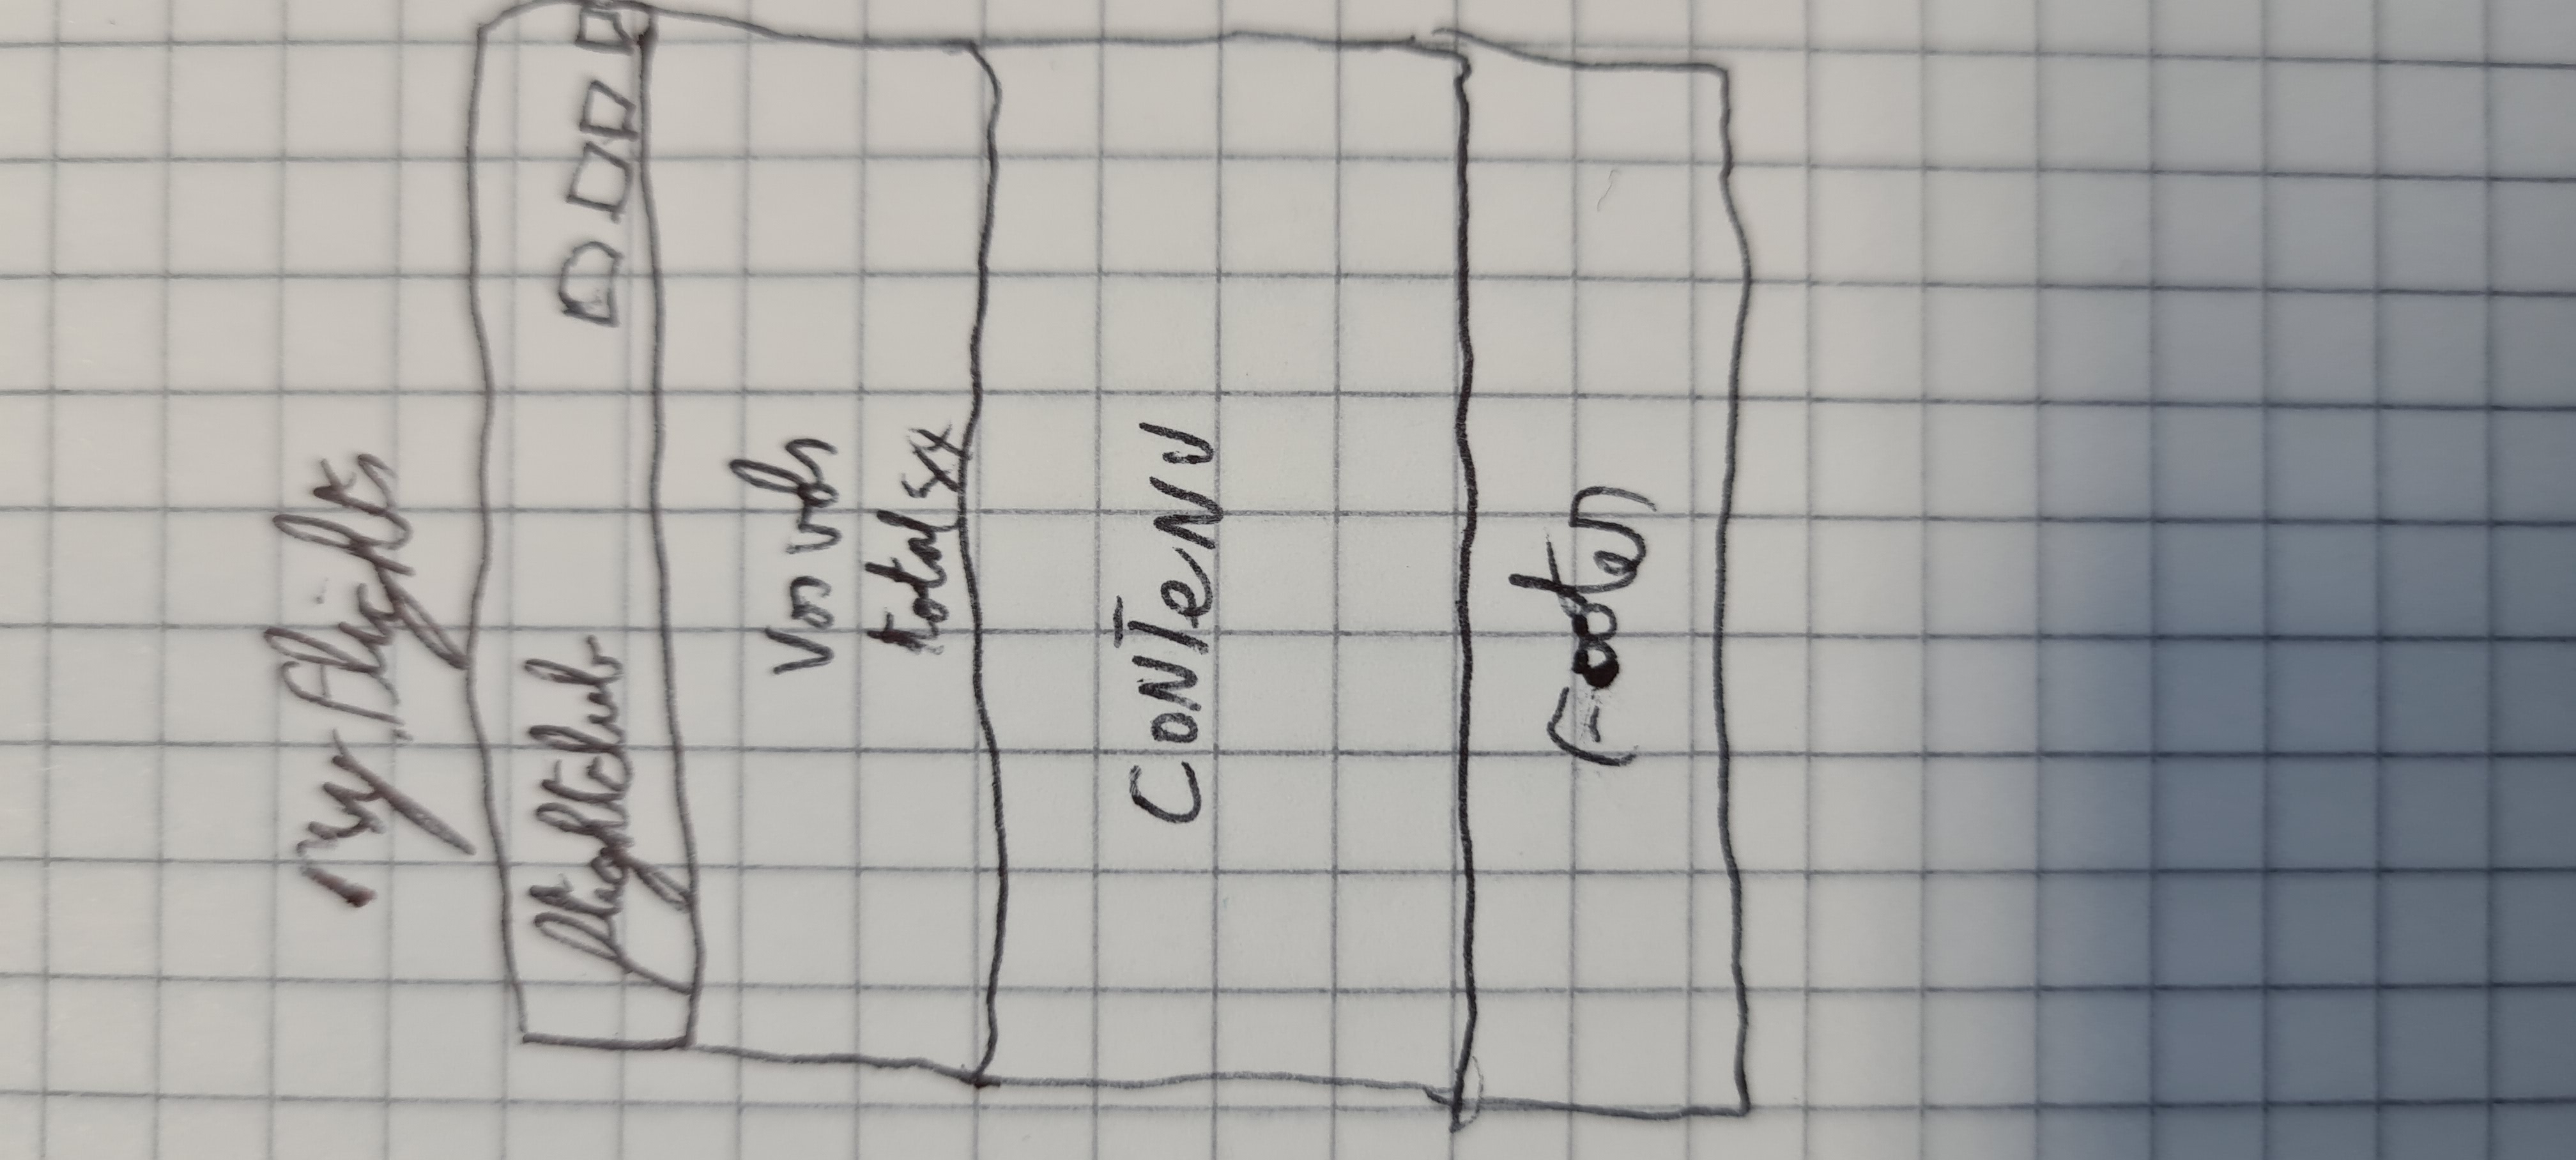 My flights
flightclub
Vos vols
total
CONTeNU
Footer